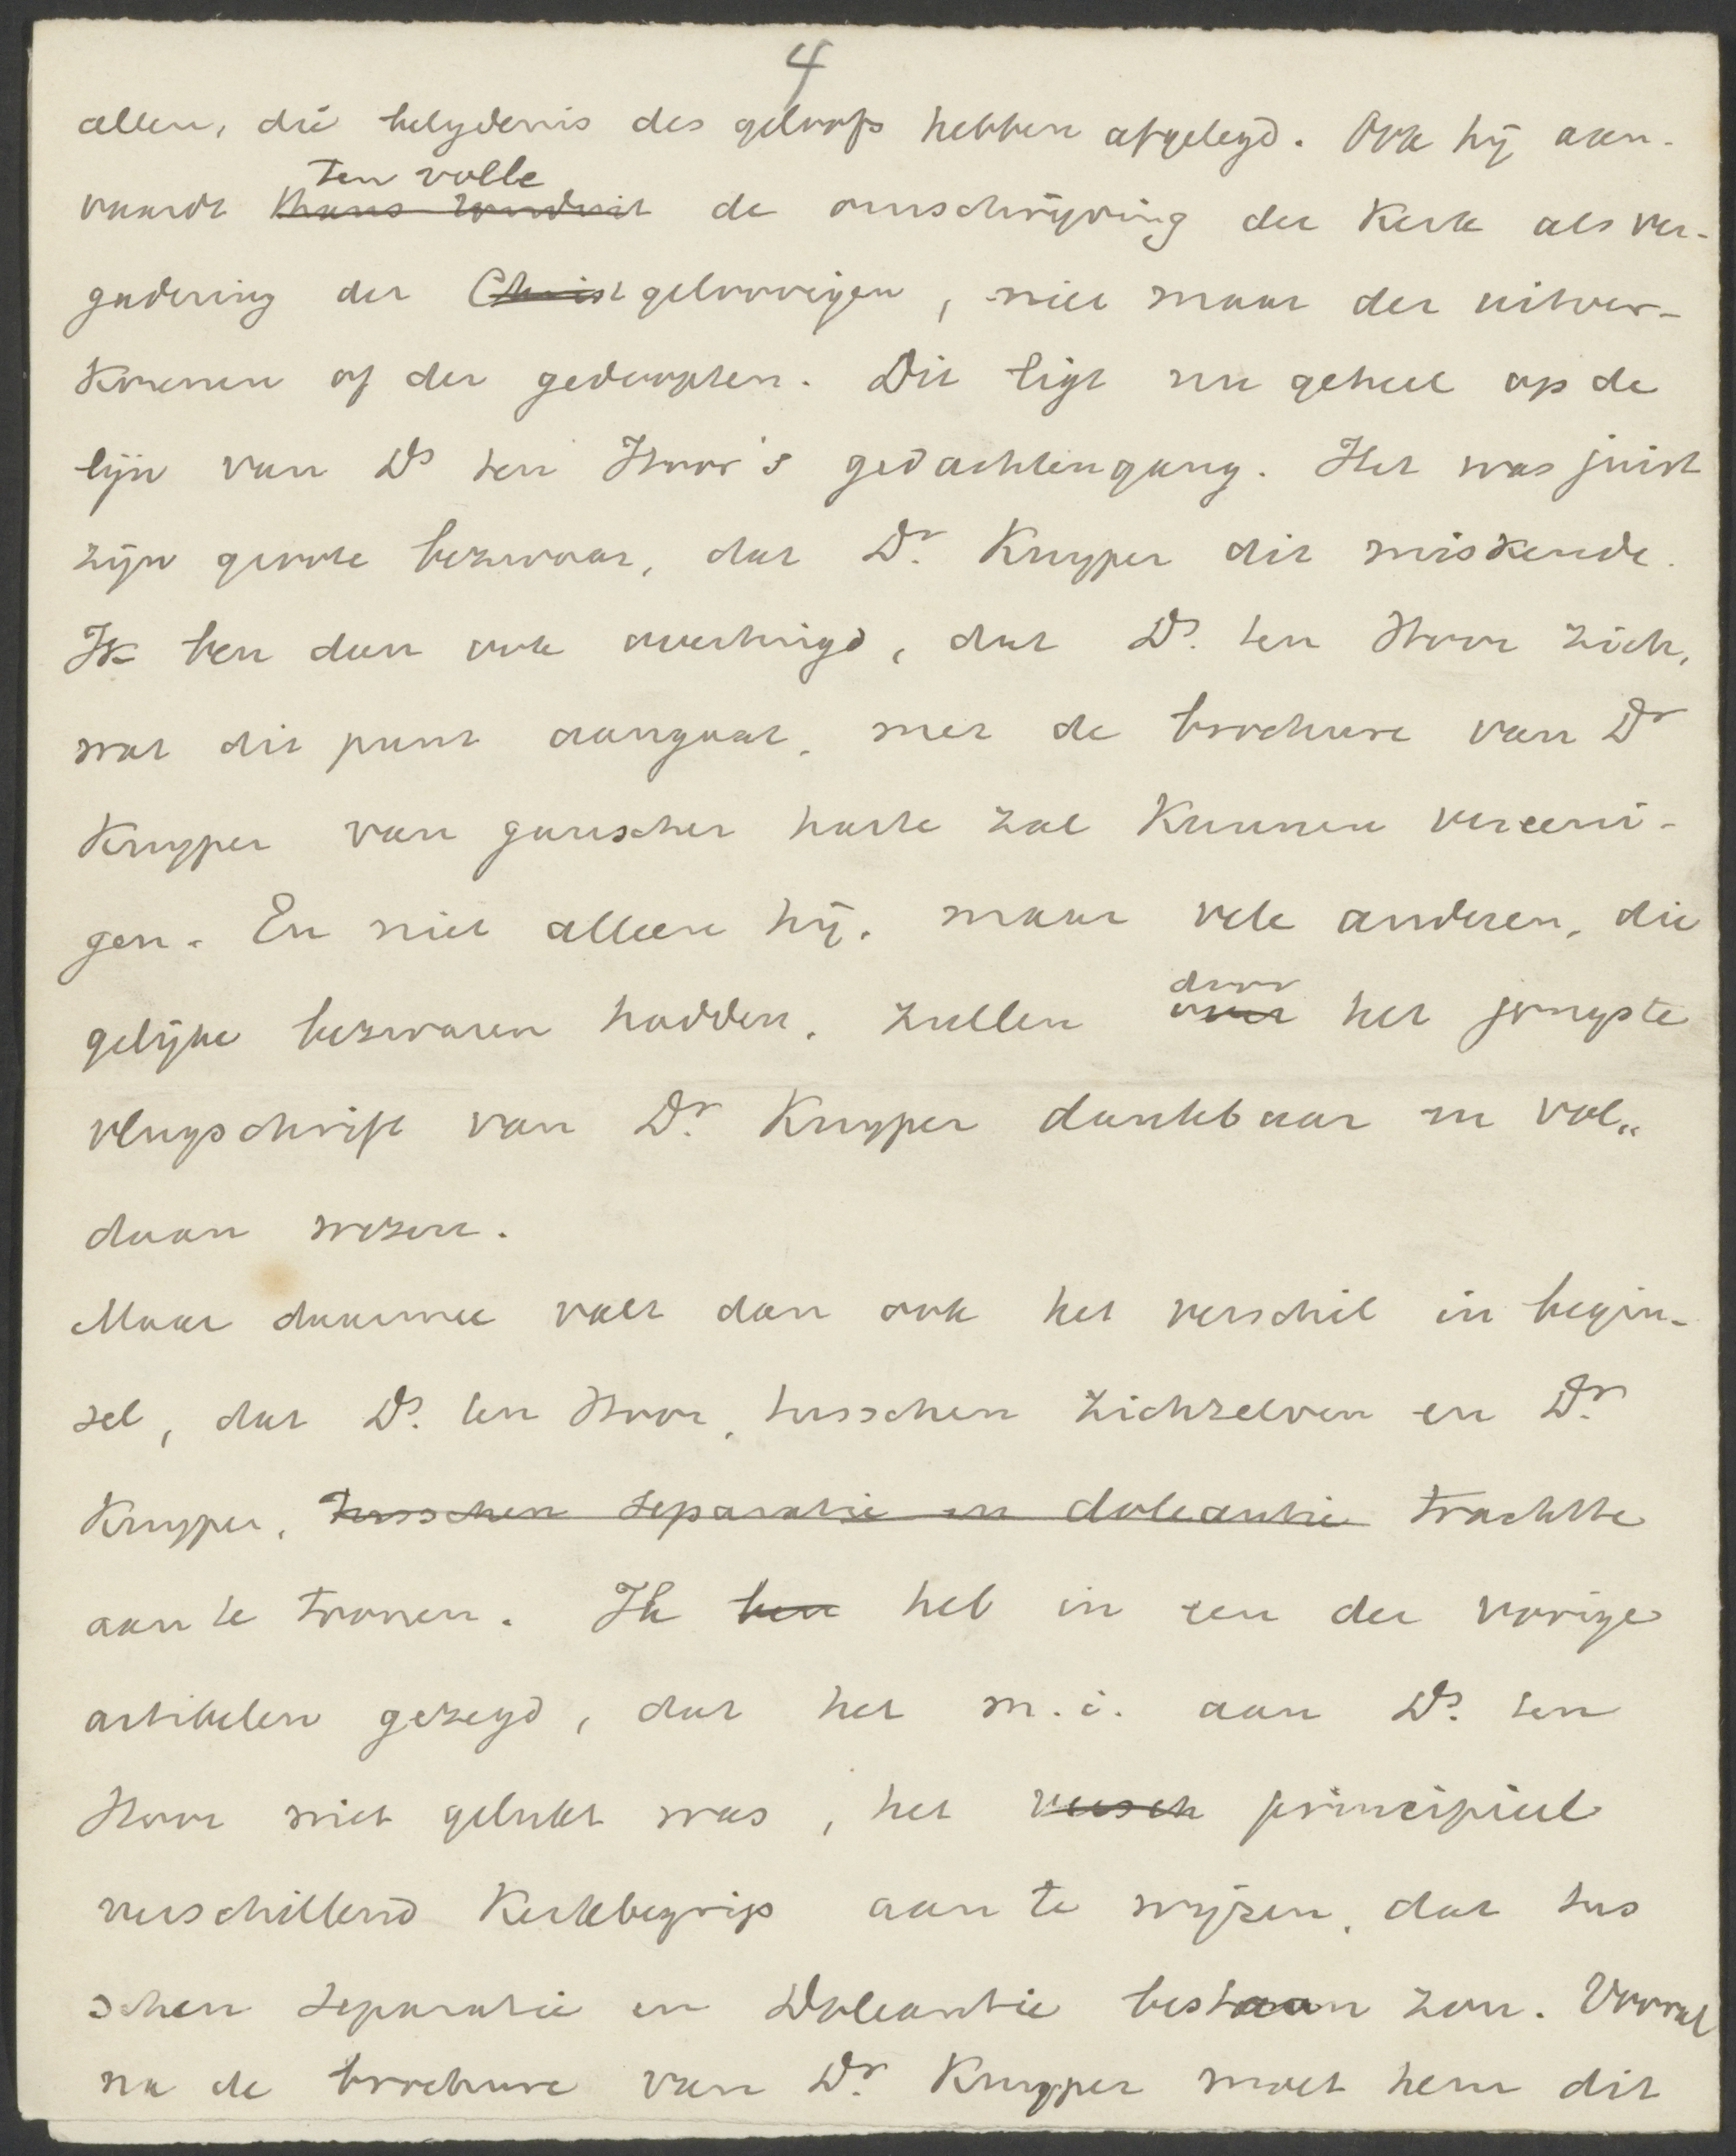 4
allen, die belydenis des geloofs hebben afgelegd. Ook hij aan-
ten volle
vaardt thans ronduit de omschrijving der Kerk als ver-
gadering der Christgeloovigen, niet maar der uitver-
korenen of der gedoopten. Dit ligt nu geheel op de
lijn van Ds ten Hoor's gedachtengang. Het was juist
zijn groote bezwaar, dat Dr. Kuyper dit miskende.
Ik ben dan ook overtuigd, dat Ds. ten Hoor zich,
wat dit punt aangaat, met de brochure van Dr
Kuyper van ganscher harte zal kunnen vereeni-
gen. En niet alleen hij, maar vele anderen, die
gelijke bezwaren hadden, zullen
door
over het jongste
vlugschrift van Dr. Kuyper dankbaar en vol„
daan wezen.
Maar daarmee valt dan ook het verschil in begin-
sel, dat Ds. ten Hoor, tusschen zichzelven en Dr.
Kuyper, tusschen separatie en doleantie trachtte
aan te toonen. Ik ben heb in een der vorige
artikelen gezegd, dat het m.i. aan Ds. ten
Hoor niet gelukt was, het versch principieel
verschillend Kerkbegrip aan te wijzen, dat tus
schen separatie en Doleantie bestaan zou. Vooral
na de brochure van Dr. Kuyper moet hem dit